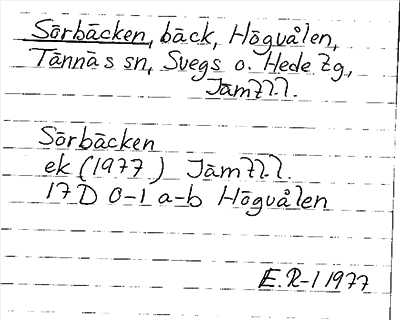 Sörbäcken, bäck, Högvålen,
Tännäs sn, Svegs o. Hede tg,
Jämtl.
Sörbäcken
ek (1977) Jämtl.
17D 0-1 a-b Högvålen
E.R-l 1977